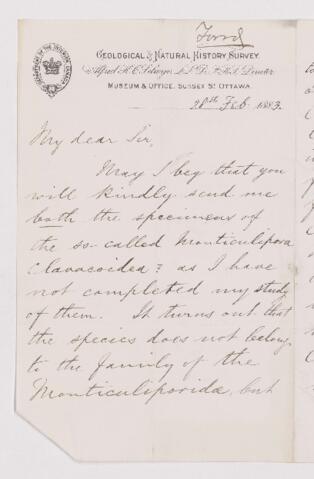 Foord
Geological & Natural History Survey.
Alfred R.C. Selwyn, L.L.D. F.R.S. Director
Museum & Office, Sussex St. Ottawa.
28th Feb 1883.
My dear Sir,
May I beg that you
will kindly send me
both the specimens of
the so-called Monticulipora
clavacoidea? as I have
not completed my study
of them. It turns out that
the species does not belong
to the family of the
Monticuliporidae, but